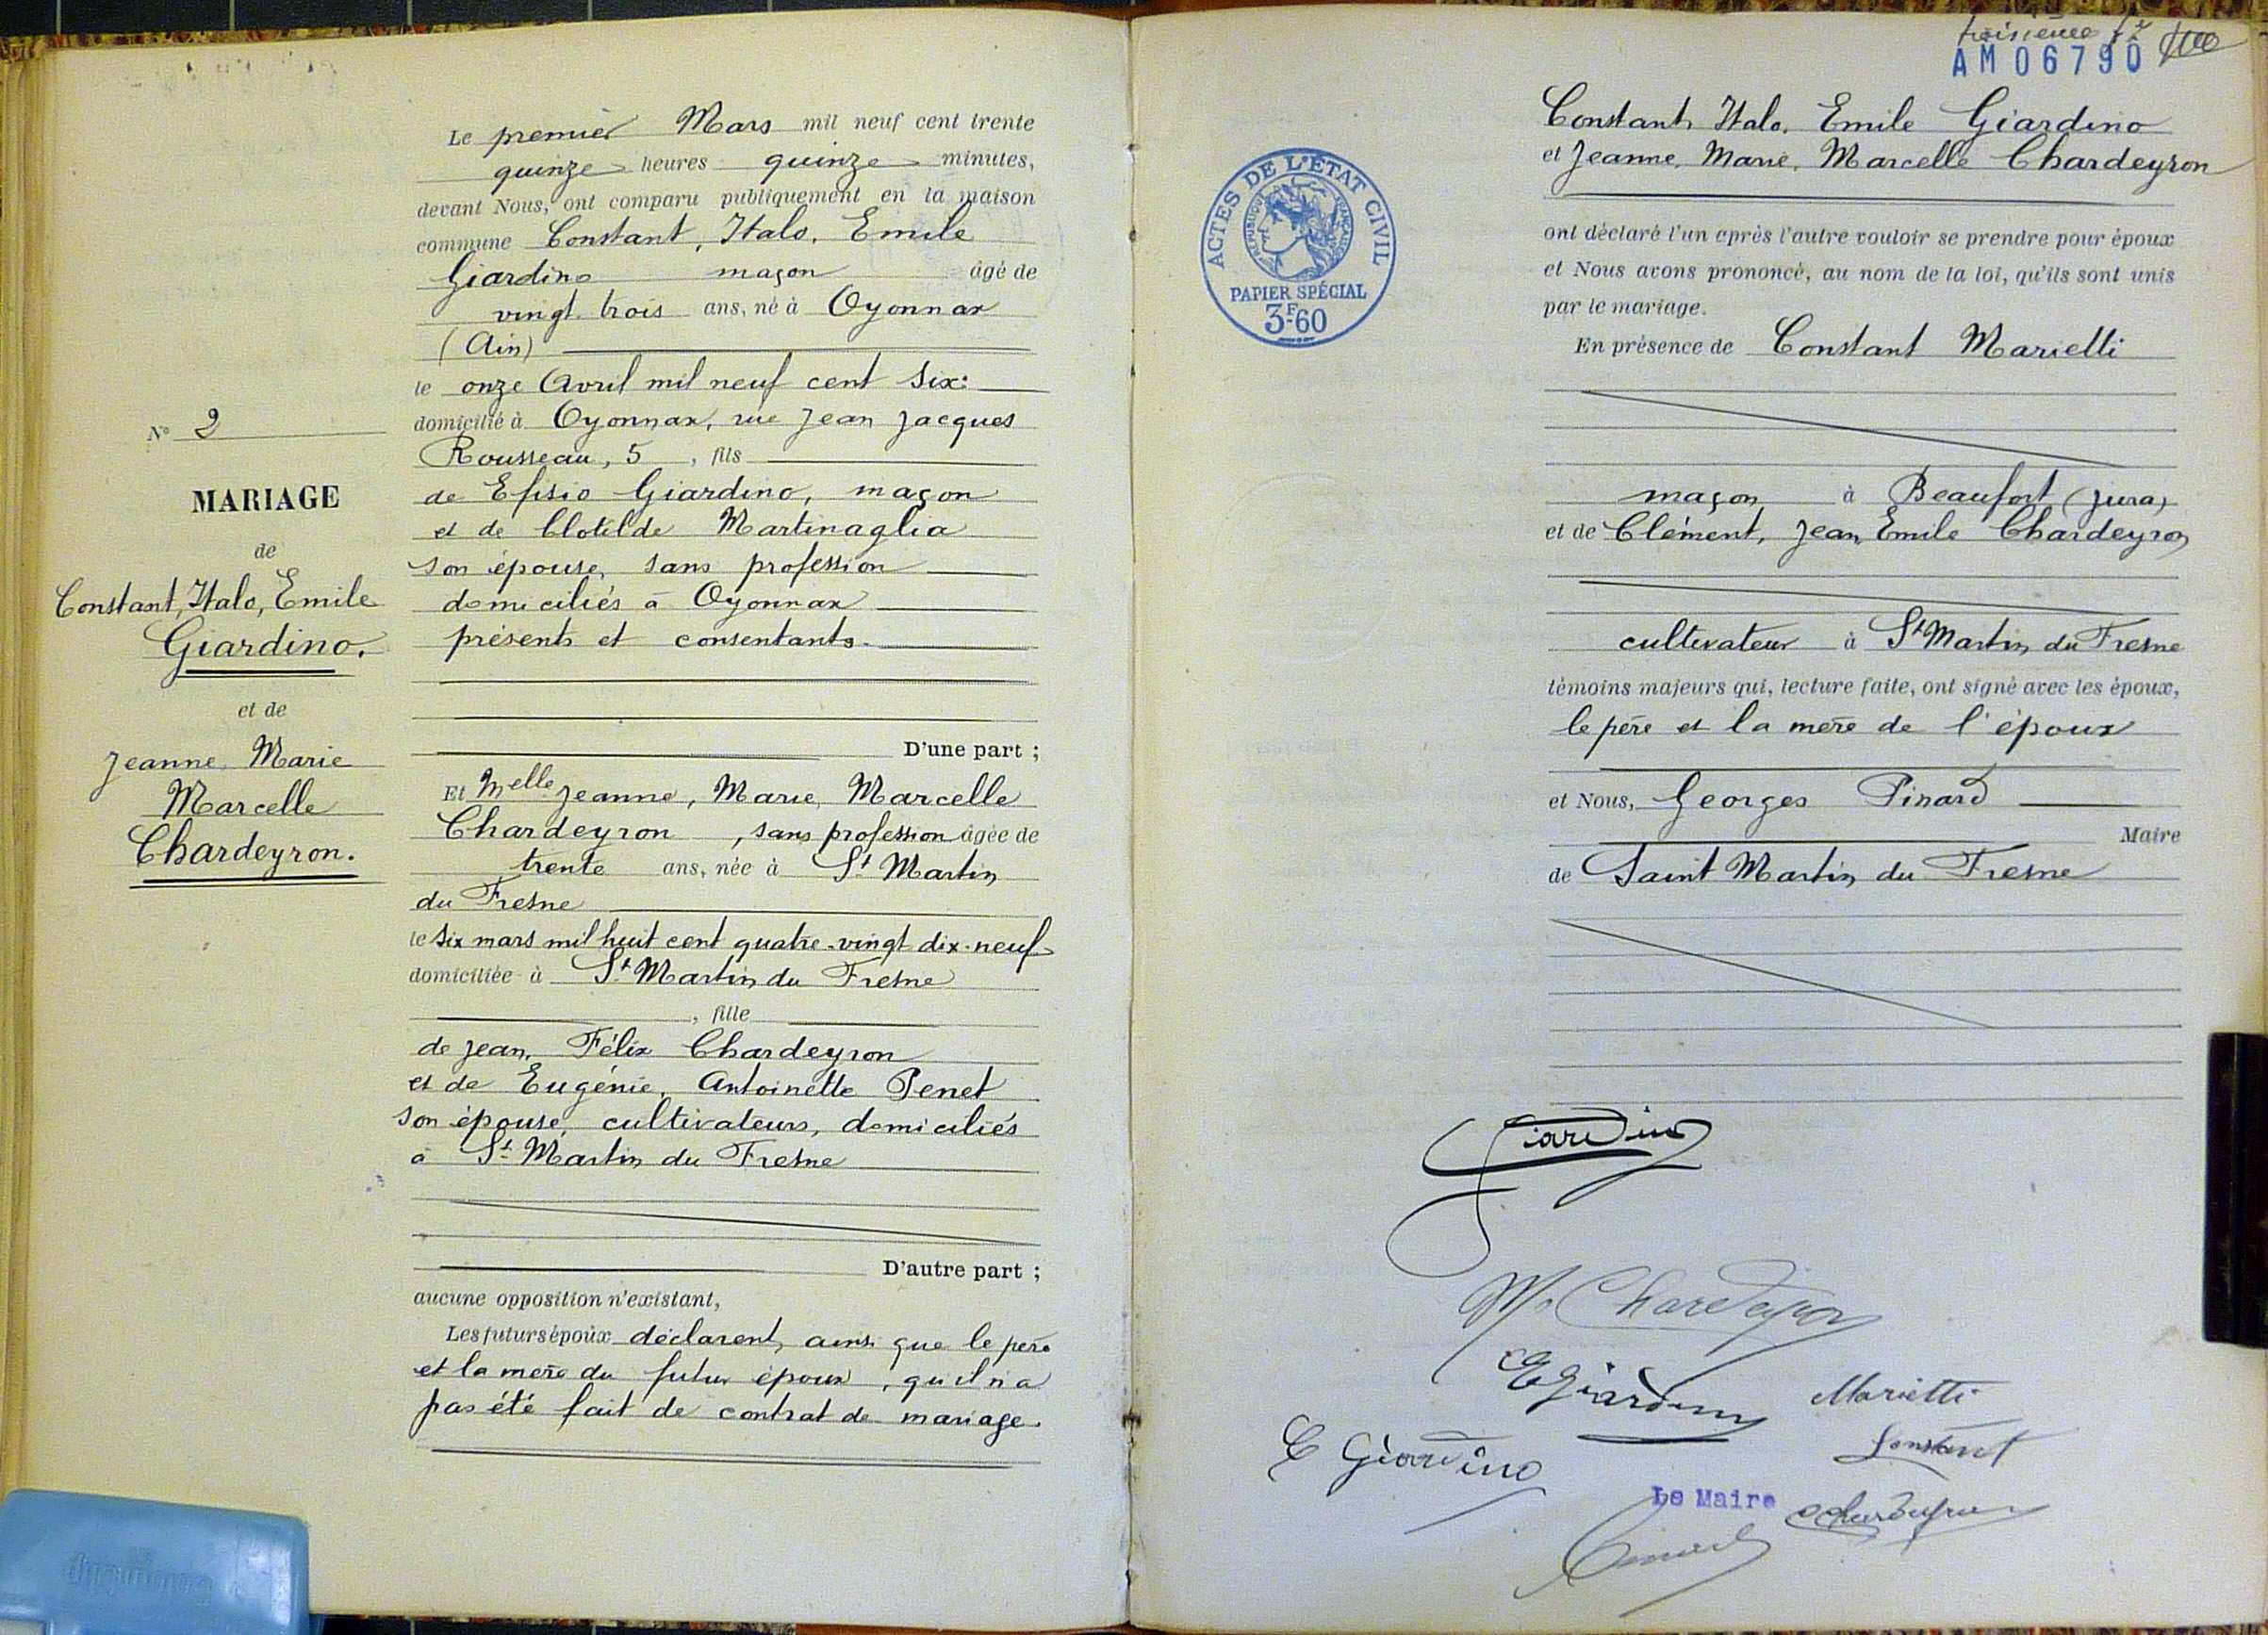 Le premier Mars mil neuf cent trente
quinze heures quinze minutes,
devant Nous, ont comparu publiquement en la maison
commune Constant, Italo, Emile
Giardino maçon âgé de
vingt trois ans, né à Oyonnax
(Ain)
le onze Avril mil neuf cent six:
domicilié à Oyonnax, rue Jean Jacques
Rousseau, 5, fils
de Efisio Giardino, maçon
et de Clotilde Martinaglia
son épouse, sans profession
domiciliés à Oyonnax
présents et consentants.
D'une part ;
N° 2
MARIAGE
de
Constant, Italo, Emile
Giardino.
et de
Jeanne, Marie
Marcelle
Chardeyron.
Et Melle Jeanne, Marie, Marcelle
Chardeyron, sans profession âgée de
trente ans, née à St Martin
du Fresne
le six mars mil huit cent quatre-vingt dix-neuf
domiciliée à St Martin du Fresne
, fille
de Jean, Félix Chardeyron
et de Eugénie, Antoinette Penet
son épouse, cultivateurs, domiciliés
à St Martin du Fresne
D'autre part ;
aucune opposition n'existant,
Les futurs époux déclarent, ainsi que le père
et la mère du futur époux, qu'il n'a
pas été fait de contrat de mariage.
troisième
AM06790
ACTES DE L'ÉTAT CIVIL
RÉPUBLIQUE FRANÇAISE
PAPIER SPÉCIAL
3F.60
Constant, Italo, Emile Giardino
et Jeanne, Marie, Marcelle Chardeyron
ont déclaré l'un après l'autre vouloir se prendre pour époux
et Nous avons prononcé, au nom de la loi, qu'ils sont unis
par le mariage.
En présence de Constant Marietti
maçon à Beaufort (Jura)
et de Clément, Jean, Emile Chardeyron
cultivateur à St Martin du Fresne
témoins majeurs qui, lecture faite, ont signé avec les époux,
le père et la mère de l'époux
et Nous, Georges Pinard
Maire
de Saint Martin du Fresne
Giardino
M. Chardeyron
E Giardino
Marietti
Constant
C Giardino
Le Maire
Chardeyron